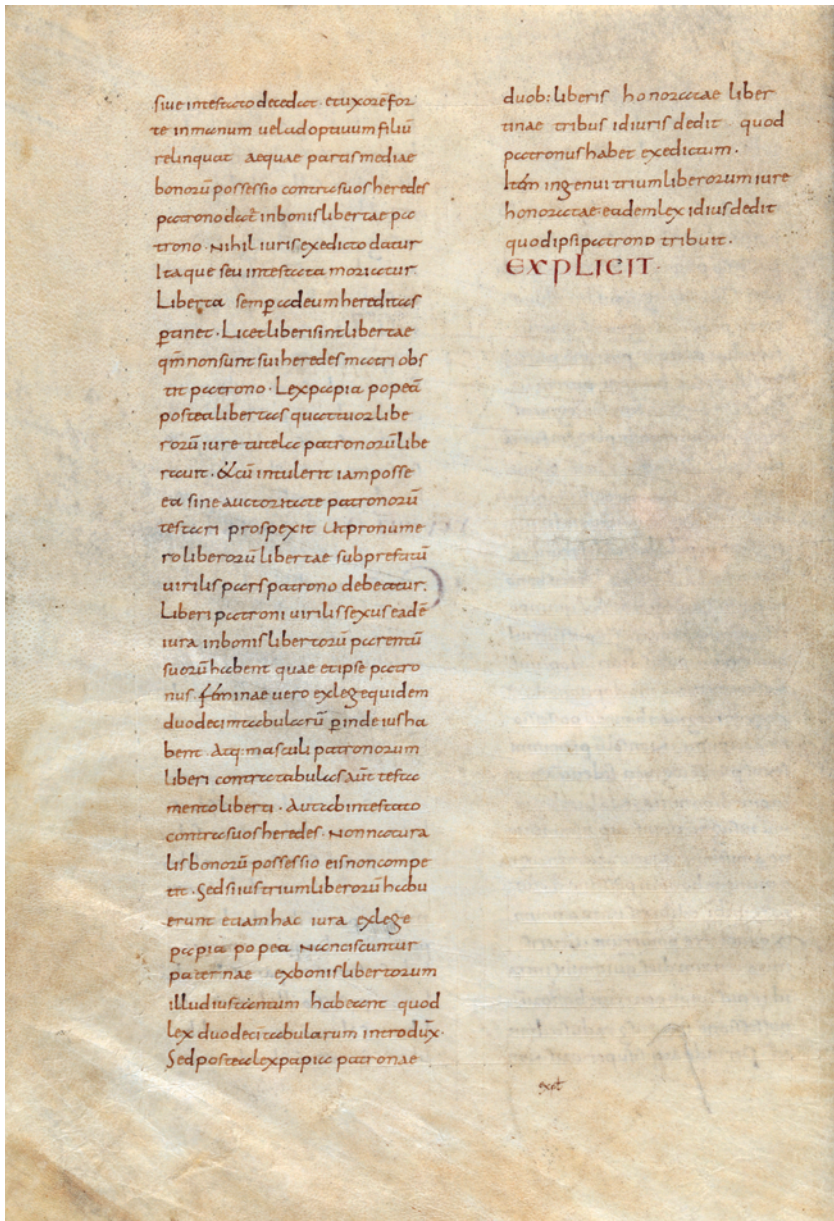 siue intestato decedat · et uxorē for
te in manum uel adoptiuum filiū
relinquat aequae partis mediae
bonorū possessio contra suos heredes
patrono dat̄ in bonis libertae pa
trono · Nihil iuris ex edicto datur
Itaque seu intestata moriatur
Liberta semp̄ ad eum hereditas
p̄tinet · Licet liberi sint libertae
qm̄ non sunt sui heredes matri obs
tit patrono · Lex papia popeā
postea libertas quattuor libe
rorū iure tutela patronorū libe
rauit · & cū intulerit iam posse
ea sine auctoritate patronorū
testari prospexit Ut pro nume
ro liberorū libertae subprefatū
uirilis pars patrono debeatur.
Liberi patroni uirilis sexus eadē
iura in bonis libertorū parentū
suorū habent quae et ipse patro
nus · feminae uero ex lege quidem
duodecim tabularū p̄inde ius ha
bent Atq: masculi patronorum
liberi contra tabulas aūt testa
mento liberti · Aut ab intestato
contra suos heredes · Non natura
lis bonorū possessio eis non compe
tit · Sed si ius trium liberorū habu
erunt etiam hac iura ex lege
papia popea Nanciscuntur
paternae ex bonis libertorum
illud ius tantum habeant quod
Lex duodeci tabularum introdux̄·
Sed postea lex papia patronae
duob: liberis honoratae liber
tinae tribus id iuris dedit quod
patronus habet ex edictum .
Item ingenui trium liberorum iure
honoratae eadem lex id ius dedit
quod ipsi patrono tribuit .
EXPLICIT ·